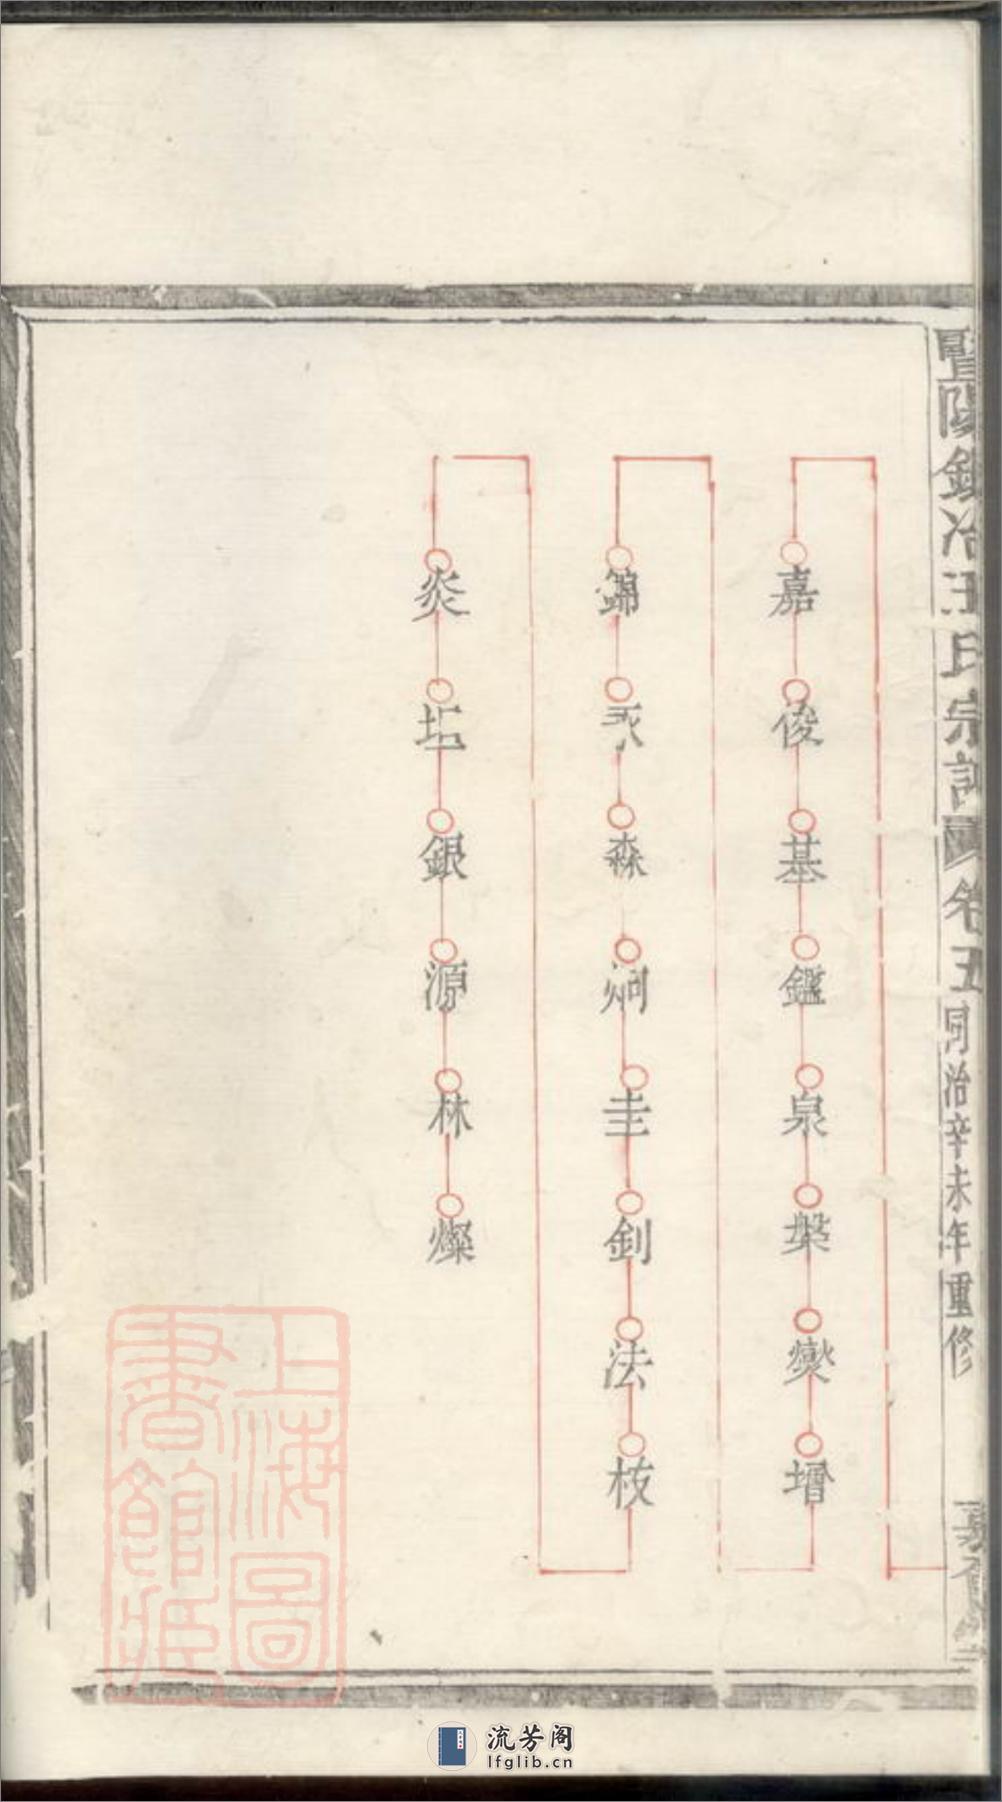 暨陽銀冶王氏宗譜 卷五 同治辛未年重修
嘉俊基鑑泉槃燮增
錦
森炯圭釗法枝
炎垢銀源林燦
上海圖
書館藏
流芳阁
lfglib.cn